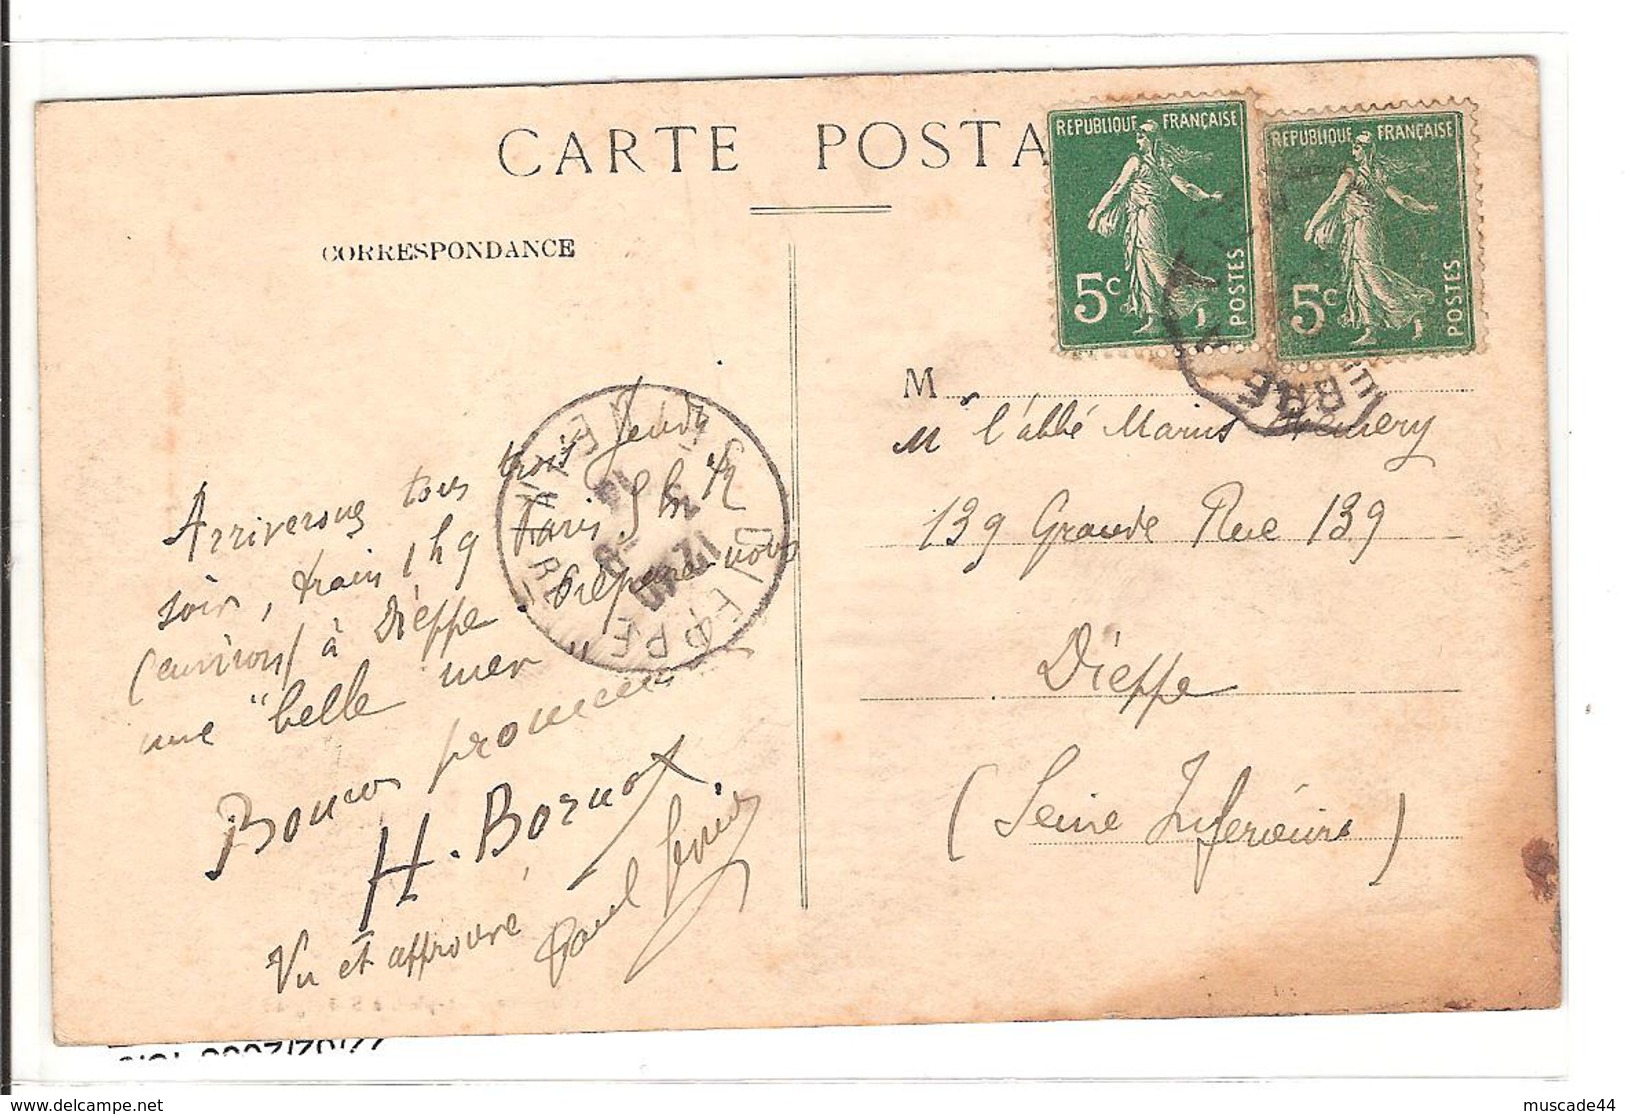 CARTE POSTA
CORRESPONDANCE
REPUBLIQUE FRANÇAISE
5c
POSTES
REPUBLIQUE FRANÇAISE
5c
POSTES
BRE
DIEPPE
Arriverons tous trois jeudi
soir, train 1h9 Paris 5h
(environ) à Dieppe. Prépare-nous
une "belle mer"
Bonnes promenades
H. Bornot.
Vu et approuvé
Paul
M
M l'abbé Marius
139 Grande Rue 139
Dieppe
(Seine Inférieure)
muscade44